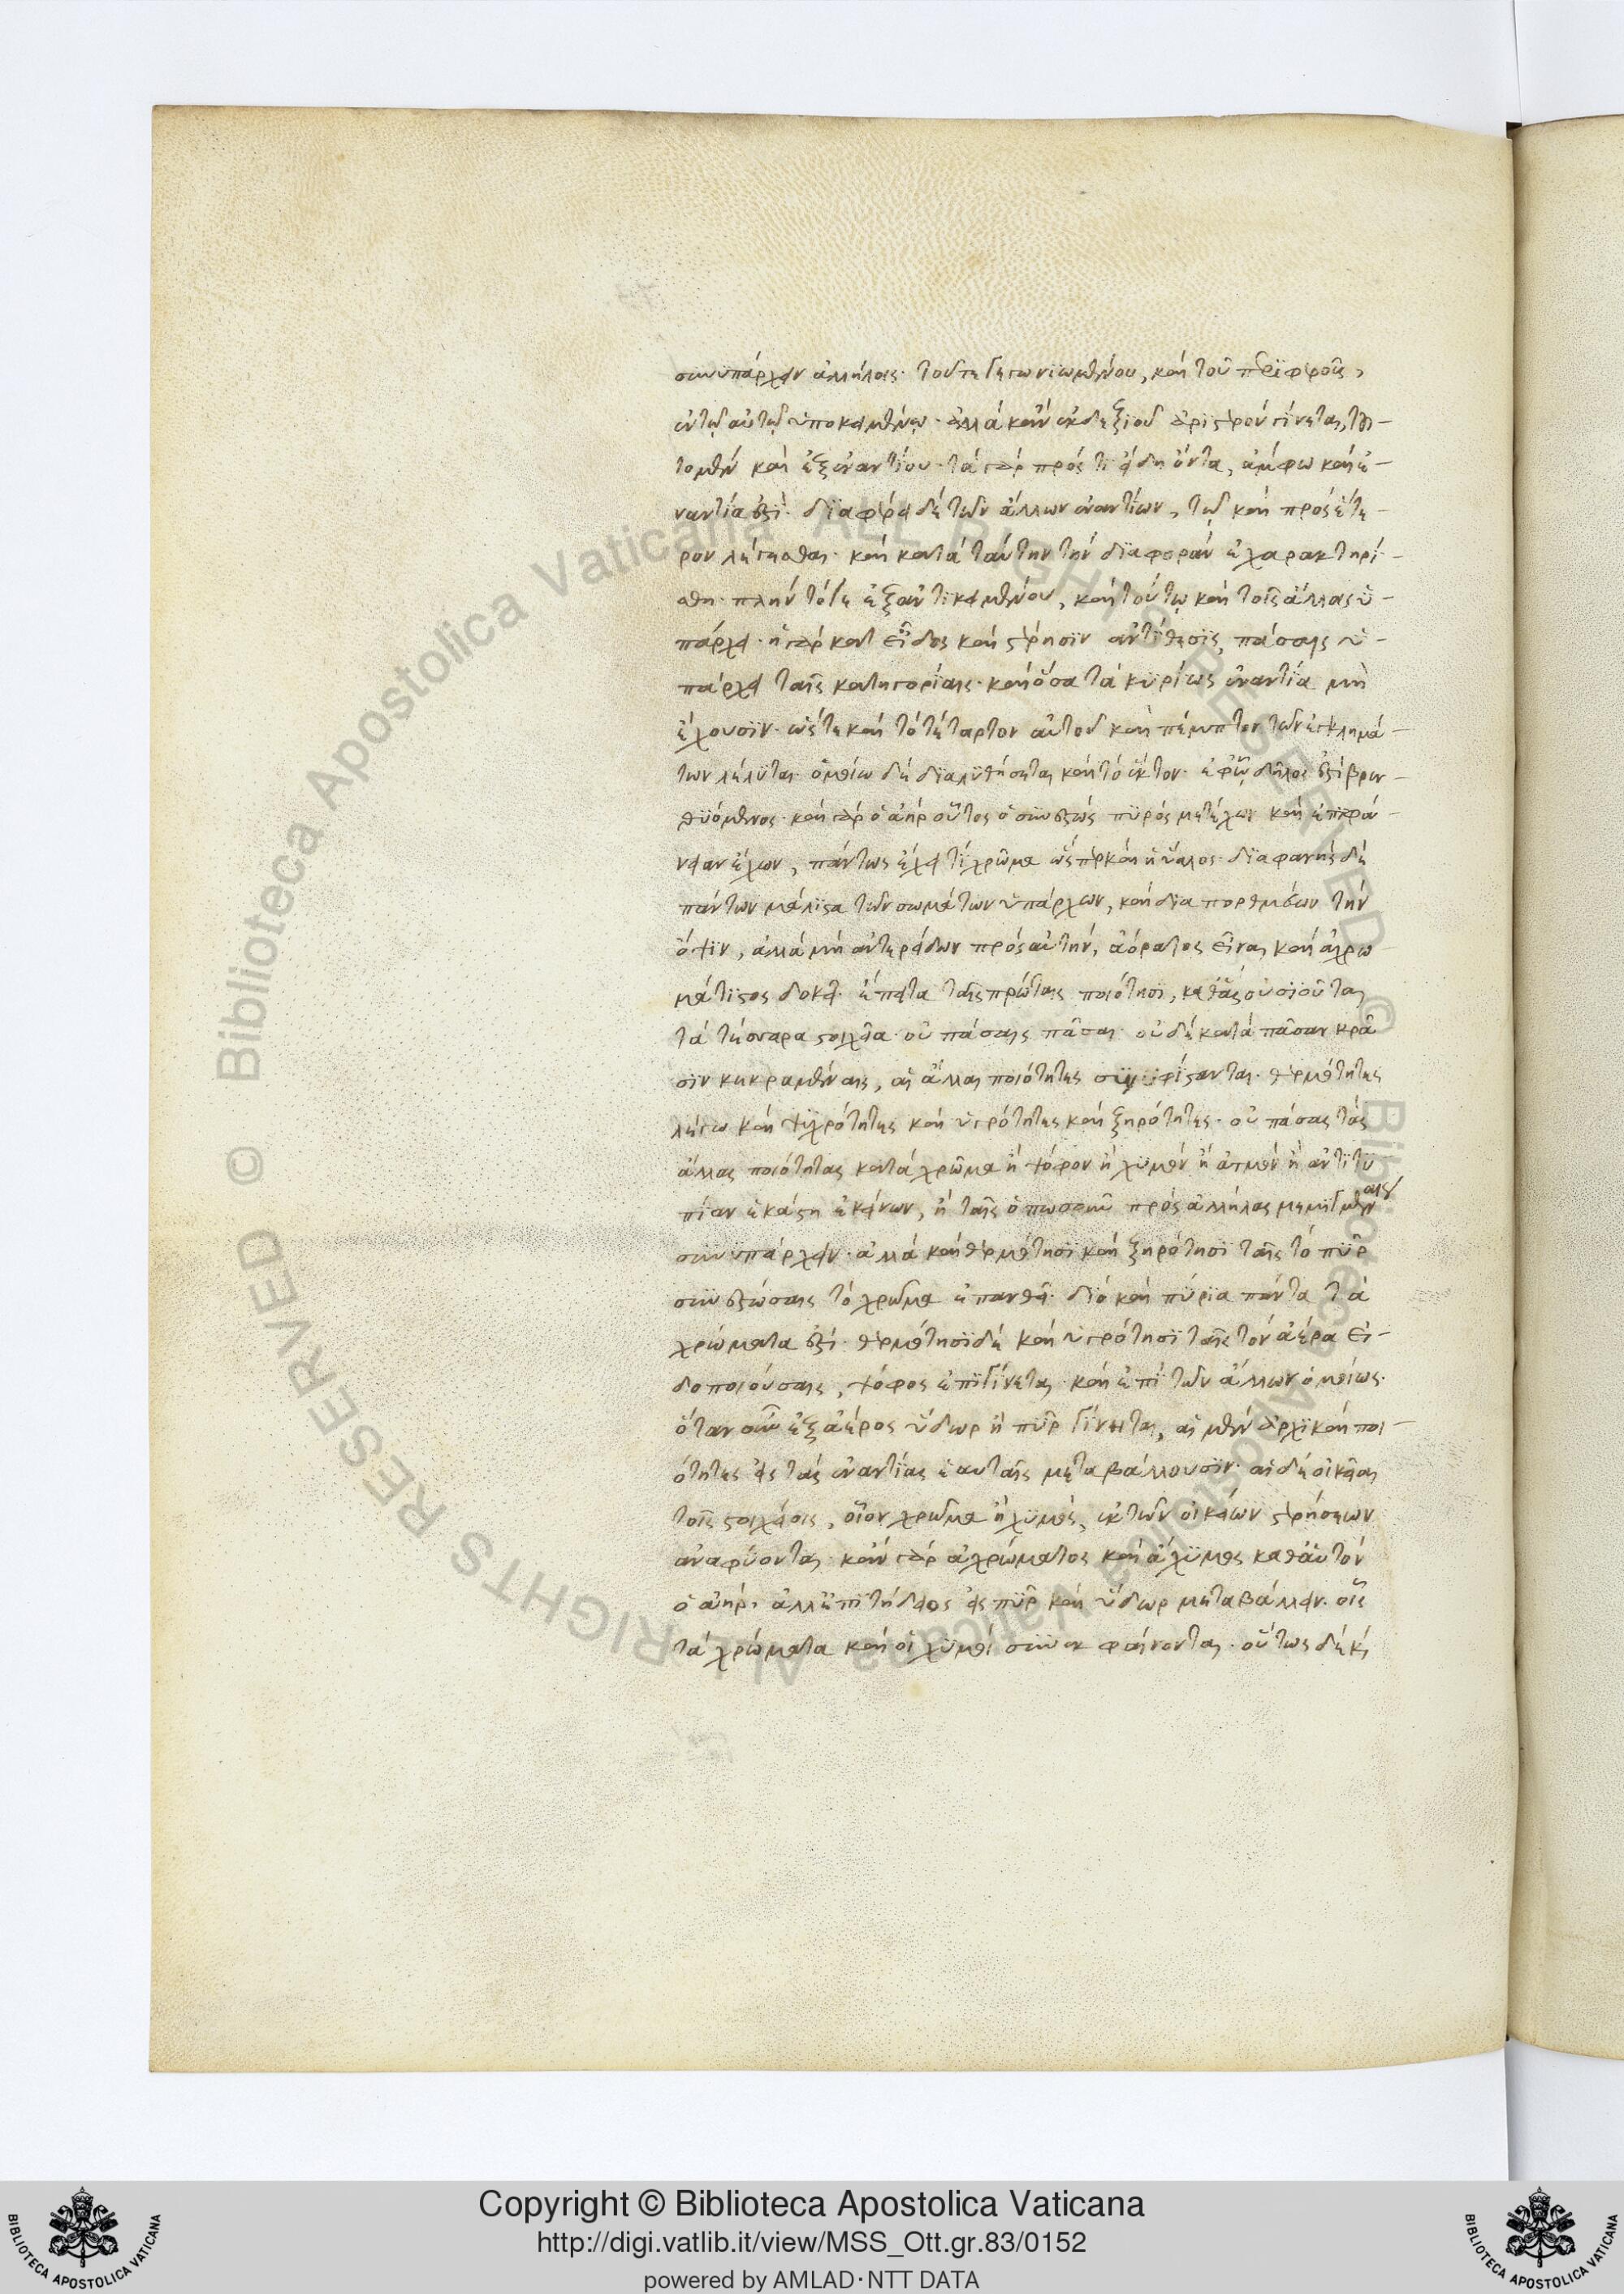 συνυπάρχειν ἀλλήλοις· τοῦτε γεγωνιωμένου, καὶ τοῦ περιφεροῦς,
ἐν τῷ αὐτῷ ὑποκειμένῳ· ἀλλὰ κἂν ἐκ δεξιοῦ ἀριστερὸν γίνεται,
τὰ γὰρ πρός τι εἴδη ὄντα, ἄμφω καὶ ἐ-
ναντία ἐστί· διαφέρει δὲ τῶν ἄλλων ἐναντίων, τῷ καὶ πρὸς ἕτε-
ρον λέγεσθαι· καὶ κατὰ ταύτην τὴν διαφορὰν ἐχαρακτηρί-
σθη· πλὴν τό γε ἐξ ἀντικειμένου, καὶ τούτῳ καὶ τοῖς ἄλλοις ὑ-
πάρχει· ἡ γὰρ κατ εἶδος καὶ στέρησιν ἀντίθεσις, πάσαις ὑ-
πάρχει ταῖς κατηγορίαις· καὶ ὅσα τὰ κυρίως ἐναντία μὴ
ἔχουσιν· ὥστε καὶ τὸ τέταρτον αὐτοῦ καὶ πέμπτον τῶν ἐγκλημά-
των λέλυται· ὁμοίω δὲ διαλυθήσεται καὶ τὸ ἕκτον· ἐφ ᾧ δῆλός ἐστι βρεν-
θυόμενος· καὶ γὰρ ὁ ἀὴρ οὗτος ὁ συνεστὼς πυρὸς μετέχων καὶ ἐπιφά-
νειαν ἔχων, πάντως ἔχει τί χρῶμα ὥσπερ καὶ ἡ ὕαλος· διαφανὴς δὲ
πάντων μάλιστα τῶν σωμάτων ὑπάρχων, καὶ διαπορθμεύων τὴν
ὄψιν, ἀλλὰ μὴ ἀντερείδων πρὸς αὐτὴν, ἀόρατος εἶναι καὶ ἀχρω
μάτιστος δοκεῖ· ἔπειτα ταῖς πρώταις ποιότησι, καθ ἃς οὐσιοῦται
τὰ τέσσαρα στοιχεῖα· οὐ πάσαις πᾶσαι· οὐδὲ κατὰ πᾶσαν κρᾶ
σιν κεκραμέναις, αἱ ἄλλαι ποιότητες συνυφίστανται· θερμότητες
λέγω καὶ ψυχρότητες καὶ ὑγρότητες καὶ ξηρότητες· οὐ πάσας τὰς
ἄλλας ποιότητας κατὰ χρῶμα ἢ ψόφον ἢ χυμὸν ἢ ἀτμὸν ἢ ἀντιτυ
πίαν ἑκάστη ἐκείνων, ἢ ταῖς ὁπωσοῦν πρὸς ἀλλήλας μεμιγμέναις
συνυπάρχειν· ἀλλὰ καὶ θερμότησι καὶ ξηρότησι ταῖς τὸ πῦρ
συνεστώσαις τὸ χρῶμα ἐπανθεῖ· διὸ καὶ πύρια πάντα τὰ
χρώματα ἐστί· θερμότησι δὲ καὶ ὑγρότησι ταῖς τὸν ἀέρα εἰ-
δοποιούσαις, ψόφος ἐπιγίνεται· καὶ ἐπὶ τῶν ἄλλων ὁμοίως·
ὅταν οὖν ἐξ ἀέρος ὕδωρ ἢ πῦρ γίνηται, αἱ μὲν ἀρχικαὶ ποι-
ότητες εἰς τὰς ἐναντίας ἑαυταῖς μεταβάλλουσιν· αἱ δὲ οἰκεῖαι
τοῖς στοιχείοις, οἷον χρῶμα ἢ χυμὸς, ἐκ τῶν οἰκείων στερήσεων
ἀναφύονται· κἂν γὰρ ἀχρώματος καὶ ἄχυμος καθ αὑτὸν
ὁ ἀήρ, ἀλλ ἐπιτήδειος εἰς πῦρ καὶ ὕδωρ μεταβάλλειν· οἷς
τὰ χρώματα καὶ οἱ χυμοὶ συνεκφαίνονται· οὕτως δὲ κὶ
Copyright © Biblioteca Apostolica Vaticana
http://digi.vatlib.it/view/MSS_Ott.gr.83/0152
powered by AMLAD·NTT DATA
BIBLIOTECA APOSTOLICA VATICANA
BIBLIOTECA APOSTOLICA VATICANA
Biblioteca Apostolica Vaticana ALL RIGHTS RESERVED ©
Biblioteca Apostolica Vaticana ALL RIGHTS RESERVED ©